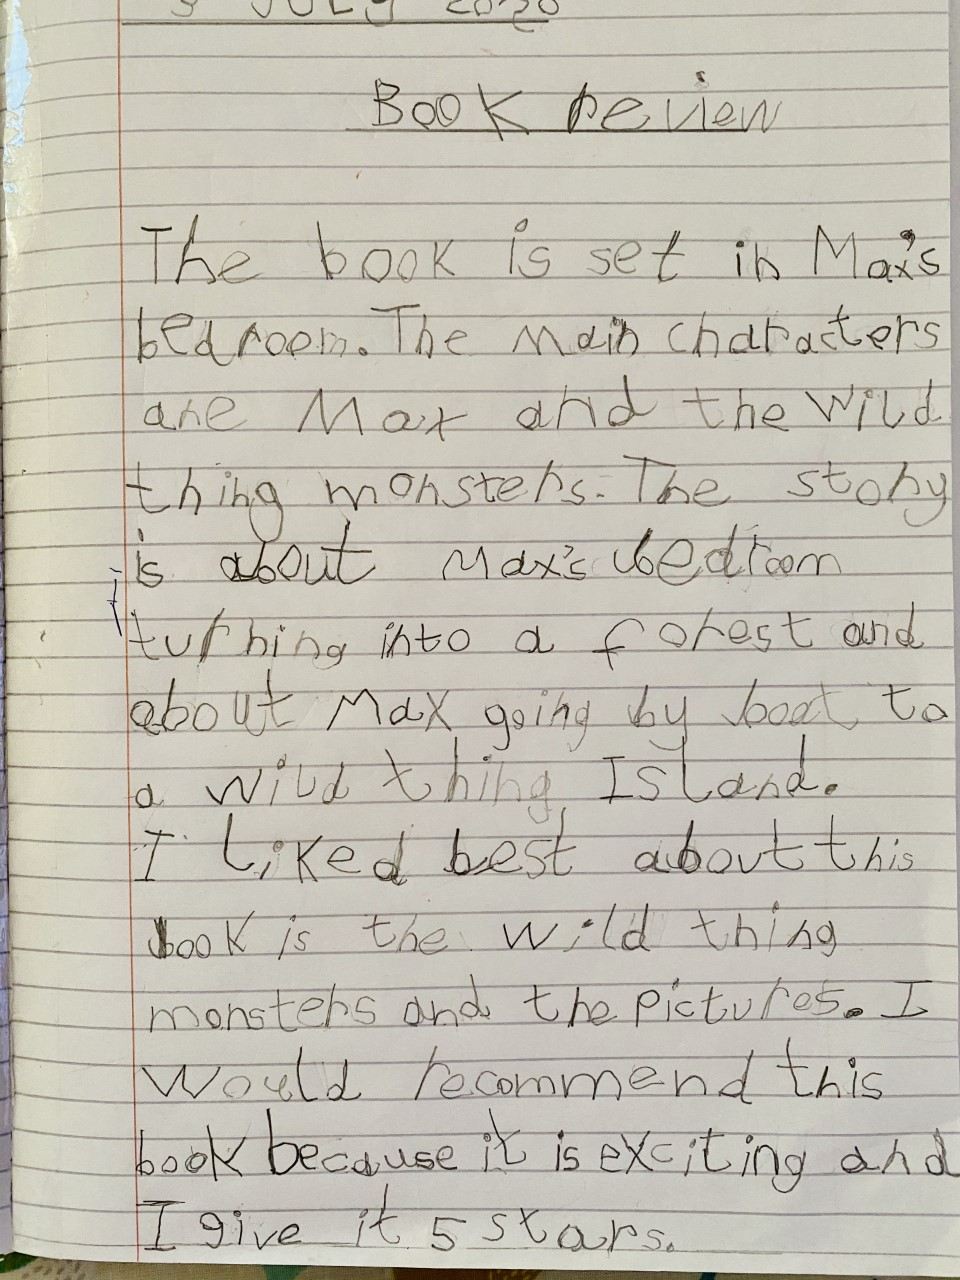 3 JULY 2020
Book review
The book is set in Max's
bedroom. The main characters
are Max and the Wild
thing monsters. The story
is about Max's bedroom
turning into a forest and
about Max going by boat to
a wild thing Island.
I Liked best about this
book is the wild thing
monsters and the pictures. I
would recommend this
book because it is exciting and
I give it 5 stars.